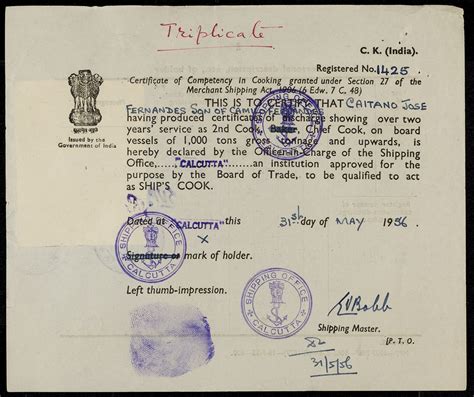 Triplicate
C. K. (India).
Registered No. 1425.
Certificate of Competency in Cooking granted under Section 27 of the
Merchant Shipping Act, 1906 (6 Edw. 7 C. 48)
THIS IS TO CERTIFY THAT CAITANO JOSE
FERNANDES SON OF CAMILO FERNANDES
having produced certificates of discharge showing over two
years' service as 2nd Cook, Baker, Chief Cook, on board
vessels of 1,000 tons gross tonnage and upwards, is
hereby declared by the Officer-in-Charge of the Shipping
Office,......"CALCUTTA"......an institution approved for the
purpose by the Board of Trade, to be qualified to act
as SHIP'S COOK.
Issued by the
Government of India
Dated at "CALCUTTA" this 31st day of MAY 1956
X
Signature or mark of holder.
SHIPPING OFFICE
CALCUTTA
Left thumb-impression.
SHIPPING OFFICE
CALCUTTA
SHIPPING OFFICE
CALCUTTA
Shipping Master.
31/5/56
[P. T. O.